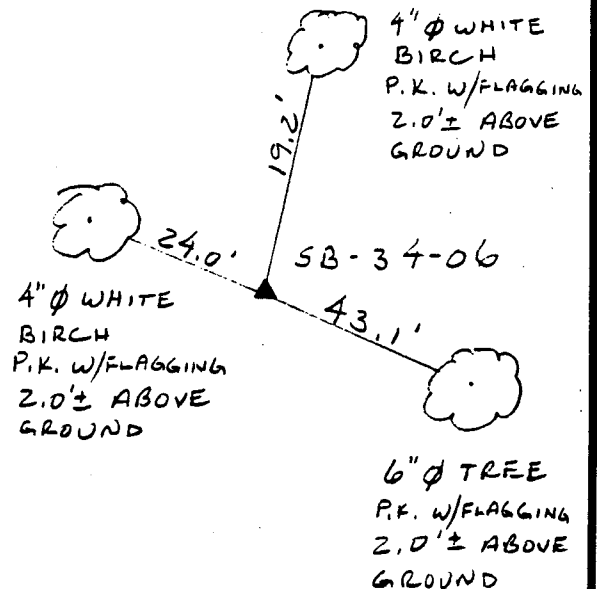 4" Ø WHITE
BIRCH
P.K. W/FLAGGING
2.0'± ABOVE
GROUND
19.2'
24.0'
SB-34-06
43.1'
4" Ø WHITE
BIRCH
P.K. W/FLAGGING
2.0'± ABOVE
GROUND
6" Ø TREE
P.K. W/FLAGGING
2.0'± ABOVE
GROUND